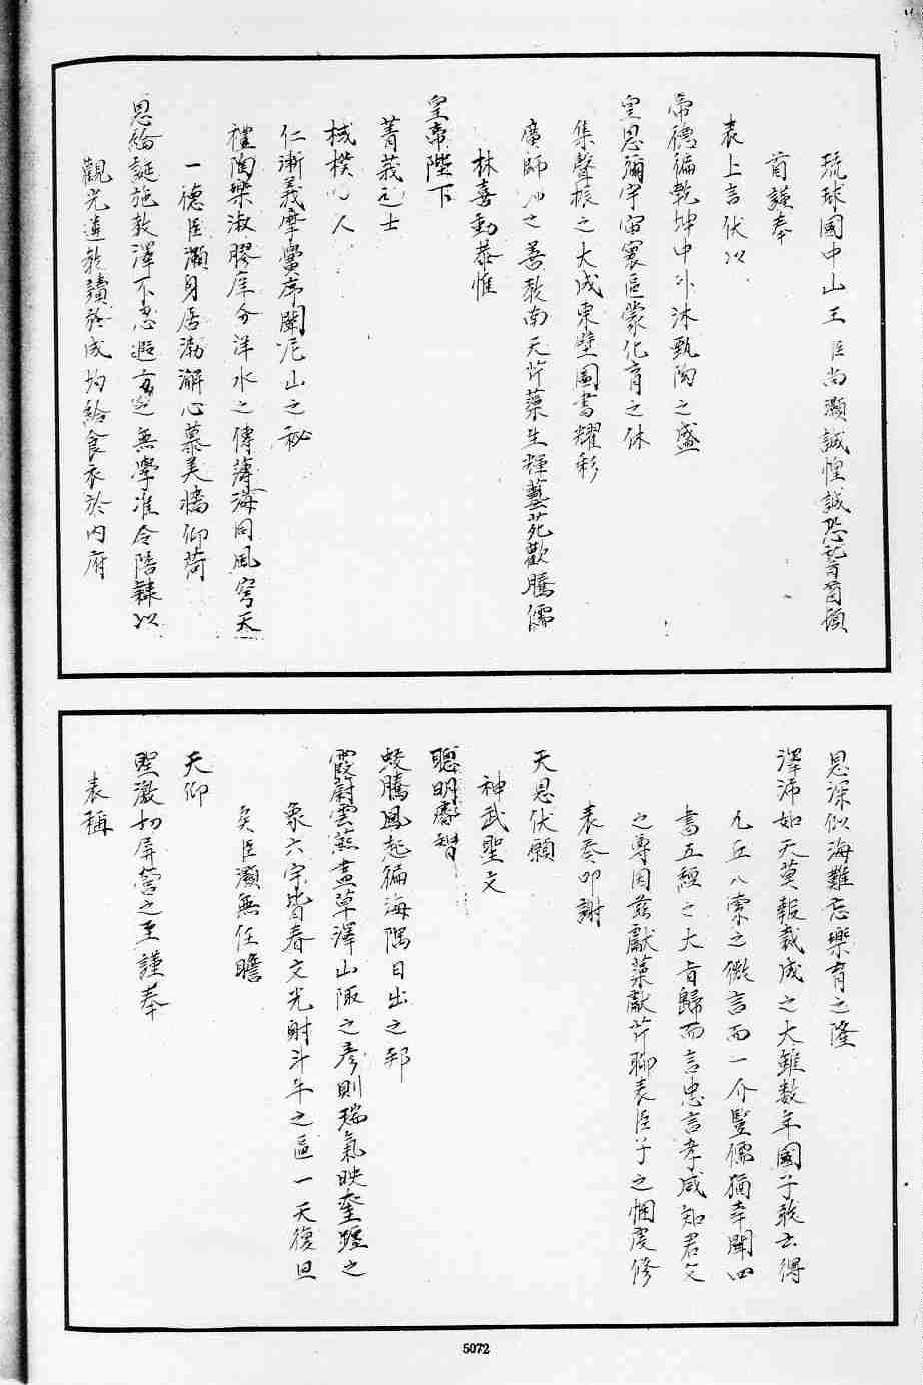 琉球國中山王臣尚灝誠惶誠恐稽首頓
首謹奉
表上言伏以
帝德徧乾坤中外沐甄陶之盛
皇恩彌宇宙寰區蒙化育之休
集聲振之大成東壁圖書耀彩
廣師氿之善教南天芹藻生輝藝苑歡騰儒
林喜動恭惟
皇帝陛下
菁莪之士
棫樸心人
仁漸義摩黌序闡尼山之秘
禮陶樂淑膠庠分泮水之傳薄海同風穹天
一德臣灝身居渤澥心慕美墻仰荷
恩綸誕施教澤不忘遐之無學准令陪隸以
觀光遣讀於成均給食衣於內府
恩深似海難忘樂育之隆
澤沛如天莫報裁成之大雖数年國子敢云得
九丘八索之微言而一介豎儒猶幸聞四
書五經之大旨歸而言忠言孝咸知君父
之尊因茲獻藻獻芹聊表臣子之悃虔修
表奏叩謝
天恩伏願
神武聖文
聰明睿智
蛟騰鳳起徧海隅日出之邦
霞蔚雲蒸盡草澤山陬之彥則瑞氣映奎躔之
象六宇皆春文光射斗牛之區一天復旦
矣臣灝無任瞻
天仰
聖激切屏營之至謹奉
表稱
5072